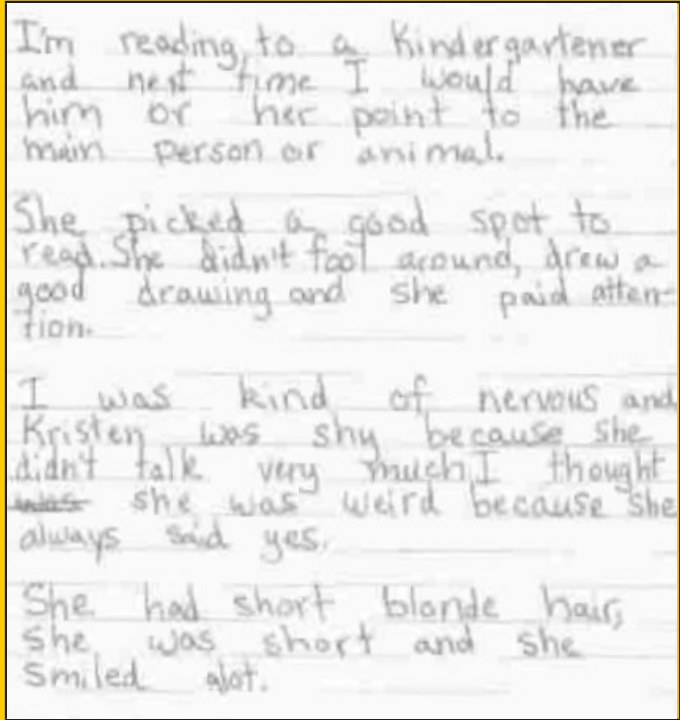 I'm reading, to a Kindergartener
and nest time I would have
him or her point to the
main person or animal.
She picked a good spot to
read. She didn't fool around, drew a
good drawing and she paid atten-
tion.
I was kind of nervous and
Kristen was shy because she
didn't talk very much, I thought
was she was weird because she
always said yes.
She had short blonde hair,
she was short and she
smiled alot.